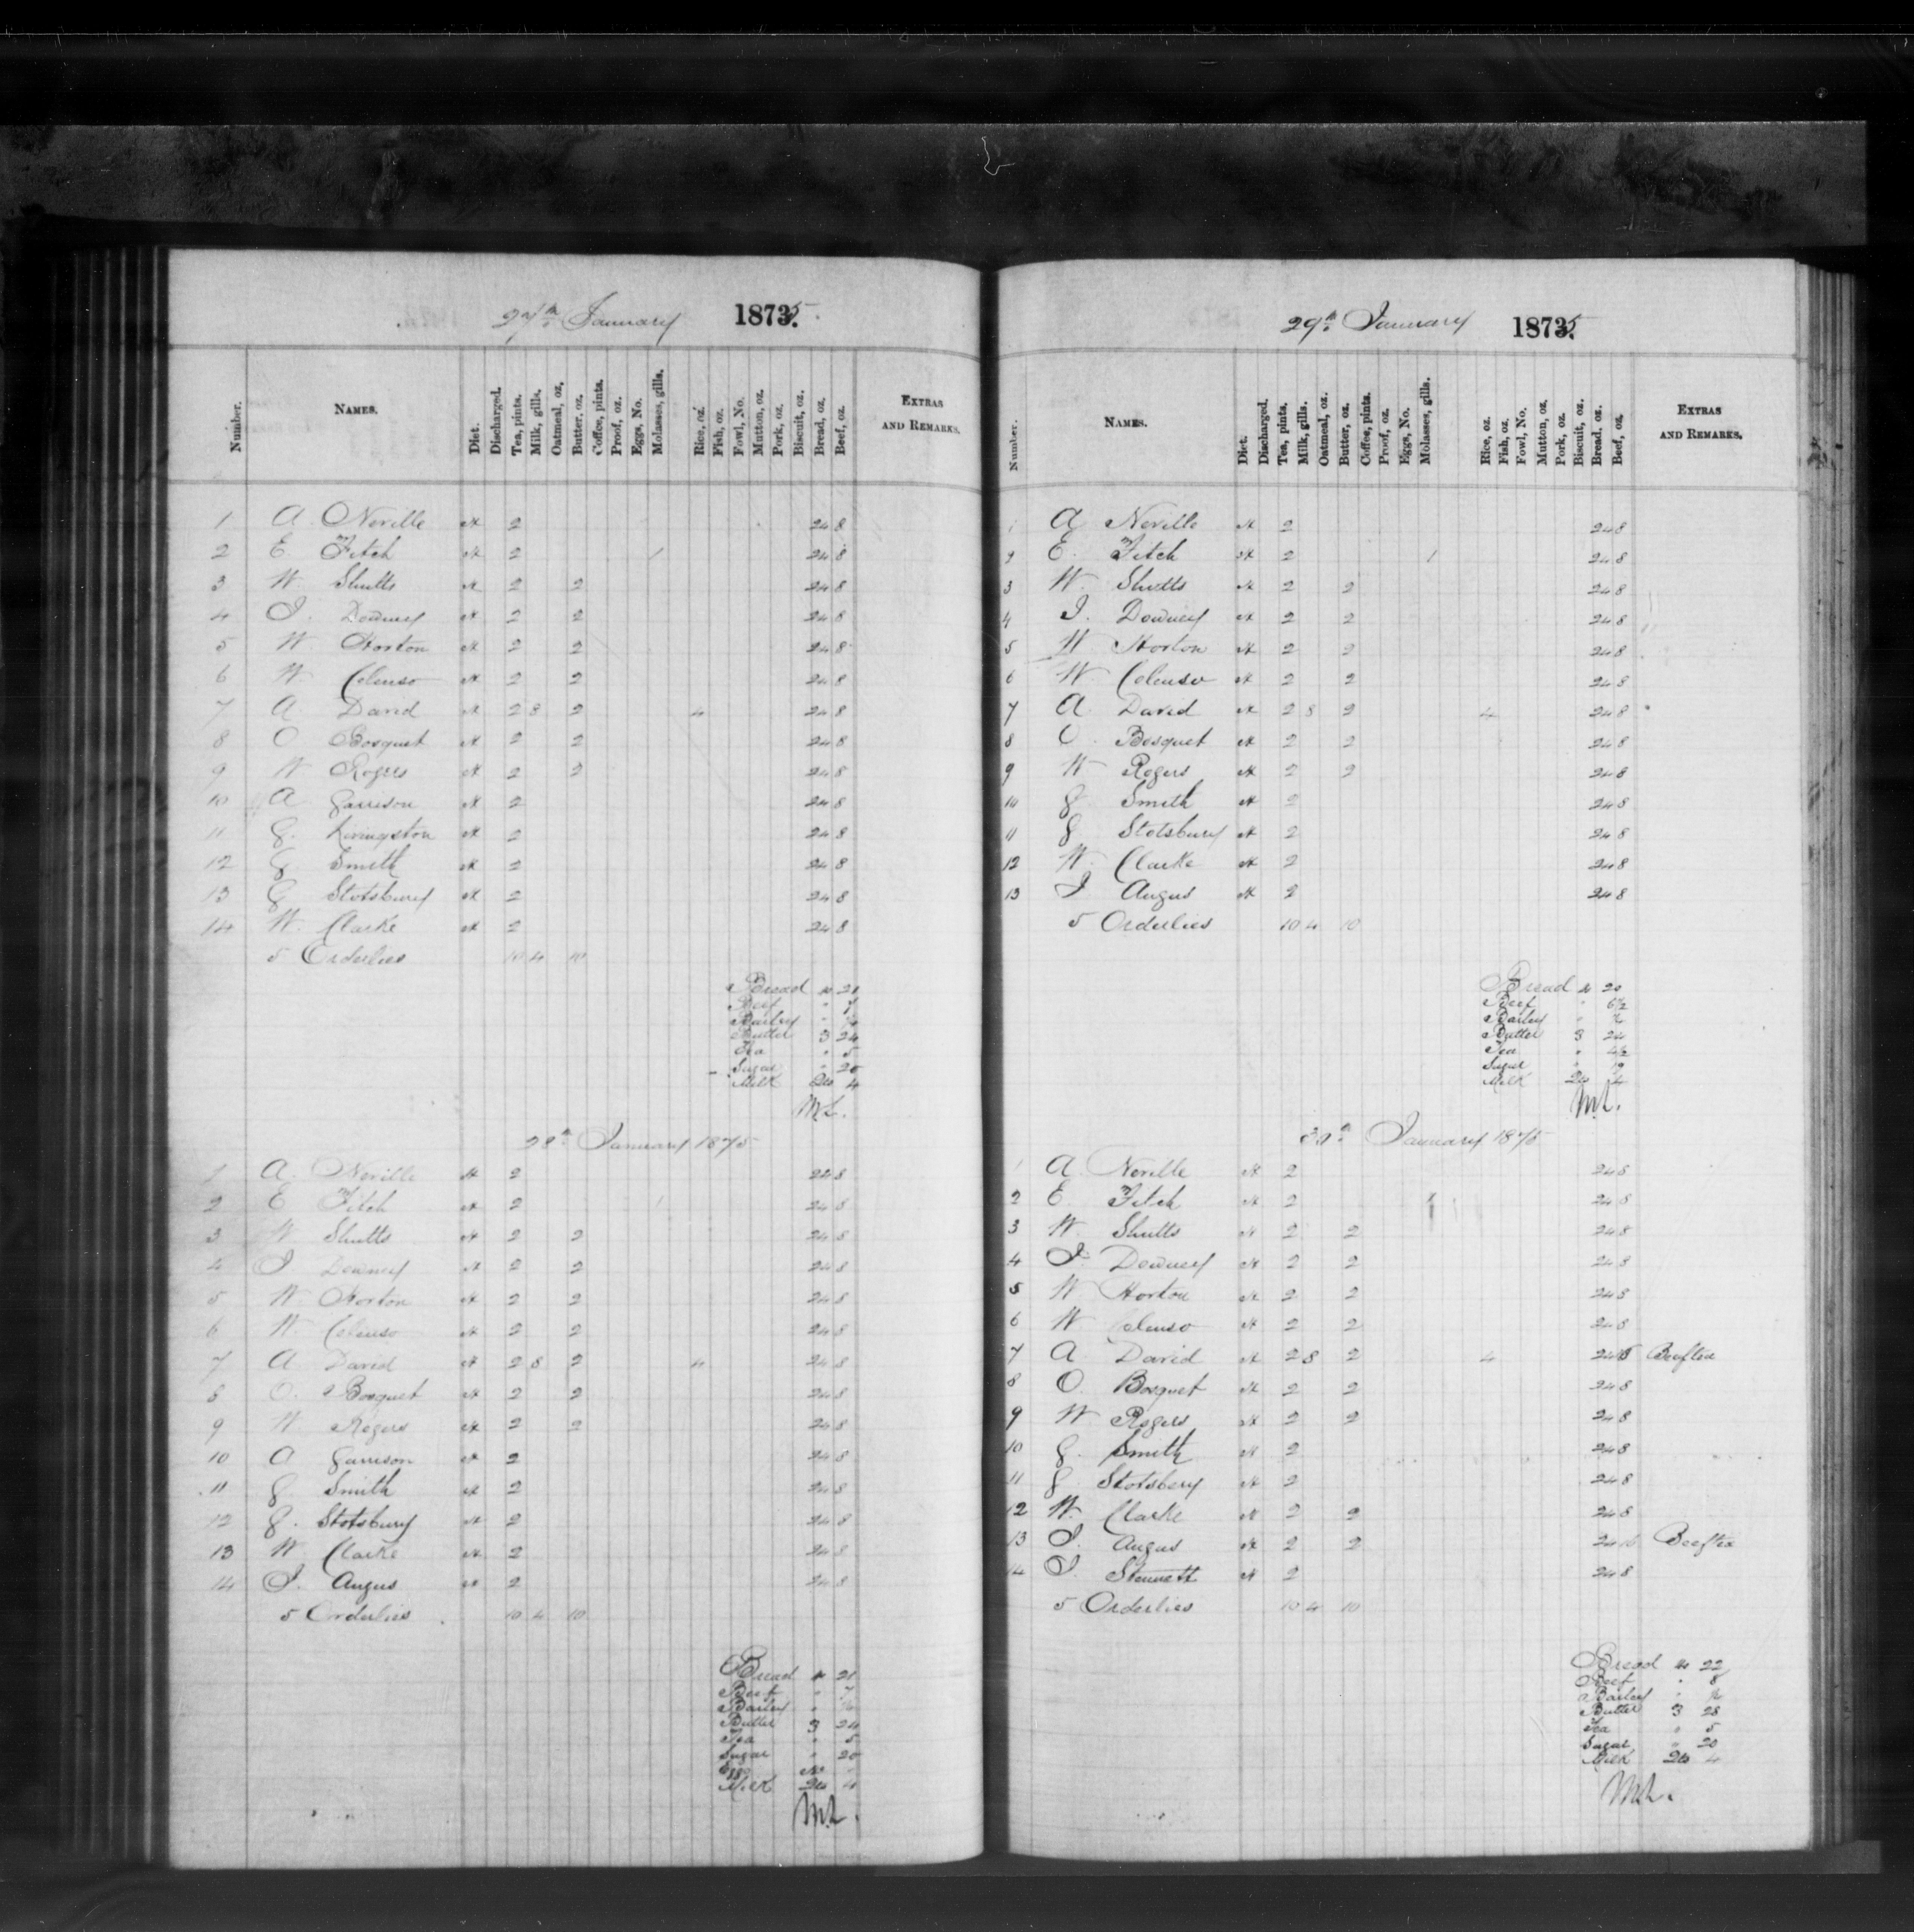 27th January 1875.
Number. NAMES. Diet. Discharged. Tea, pints. Milk, gills. Oatmeal, oz. Butter, oz. Coffee, pints. Proof, oz. Eggs, No. Molasses, gills. Rice, oz. Fish, oz. Fowl, No. Mutton, oz. Pork, oz. Biscuit, oz. Bread, oz. Beef, oz. EXTRAS AND REMARKS.
1 A. Neville 2 24 8
2 E. Fitch 2 1 24 8
3 W. Shutts 2 2 24 8
4 J. Downey 2 2 24 8
5 W Horton 2 2 24 8
6 W Colenso 2 2 24 8
7 A. David 2 8 2 4 24 8
8 O Bosquet 2 2 24 8
9 W Rogers 2 2 24 8
10 A Garrison 2 24 8
11 G. Livingston 2 24 8
12 G Smith 2 24 8
13 G Stotsbury 2 24 8
14 W. Clarke 2 24 8
5 Orderlies 10 4 10
Bread 21
Beef " 7
Barley "
Butter 3 24
Tea " 5
Sugar " 20
Milk 4
28th January 1875
1 A. Neville 2 24 8
2 E Fitch 2 1 24 8
3 W Shutts 2 2 24 8
4 J. Downey 2 2 24 8
5 W. Horton 2 2 24 8
6 W. Colenso 2 2 24 8
7 A David 2 8 2 4 24 8
8 O. Bosquet 2 2 24 8
9 W. Rogers 2 2 24 8
10 A Garrison 2 24 8
11 G. Smith 2 24 8
12 G. Stotsbury 2 24 8
13 W Clarke 2 24 8
14 J. Angus 2 24 8
5 Orderlies 10 4 10
Bread 21
Beef " 7
Barley "
Butter 3 24
Tea " 5
Sugar " 20
Eggs No
Milk 4
29th January 1875.
Number. NAMES. Diet. Discharged. Tea, pints. Milk, gills. Oatmeal, oz. Butter, oz. Coffee, pints. Proof, oz. Eggs, No. Molasses, gills. Rice, oz. Fish, oz. Fowl, No. Mutton, oz. Pork, oz. Biscuit, oz. Bread. oz. Beef, oz. EXTRAS AND REMARKS.
1 A Neville 2 24 8
2 E. Fitch 2 1 24 8
3 W. Shutts 2 2 24 8
4 J. Downey 2 2 24 8
5 W Horton 2 2 24 8
6 W. Colenso 2 2 24 8
7 A David 2 8 2 4 24 8
8 O. Bosquet 2 2 24 8
9 W Rogers 2 2 24 8
10 G. Smith 2 24 8
11 G Stotsbury 2 24 8
12 W. Clarke 2 24 8
13 J Angus 2 24 8
5 Orderlies 10 4 10
Bread 20
Beef " 6½
Barley " ½
Butter 3 24
Tea " 4½
Sugar " 19
Milk 4
30th January 1875
1 A. Neville 2 24 8
2 E. Fitch 2 1 24 8
3 W. Shutts 2 2 24 8
4 J. Downey 2 2 24 8
5 W Horton 2 2 24 8
6 W Colenso 2 2 24 8
7 A David 2 8 2 4 24 Beeftea
8 O. Bosquet 2 2 24 8
9 W Rogers 2 2 24 8
10 G. Smith 2 24 8
11 G Stotsbery 2 24 8
12 W. Clarke 2 2 24 8
13 J. Angus 2 2 24 16 Beeftea
14 J. Stennett 2 24 8
5 Orderlies 10 4 10
Bread 22
Beef " 8
Barley " ½
Butter 3 28
Tea " 5
Sugar " 20
Milk 4